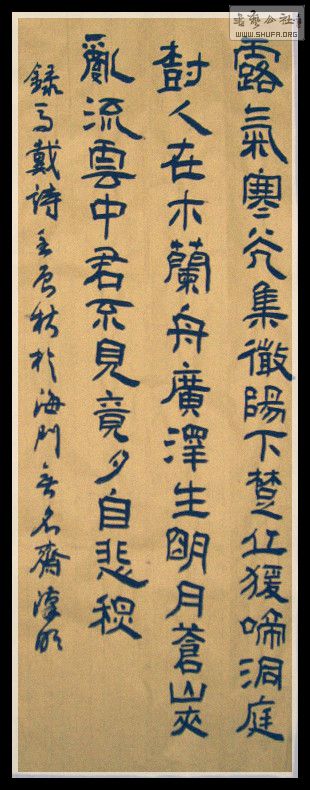 書藝公社
WWW.SHUFA.ORG
露氣寒光集微陽下楚丘猨啼洞庭
樹人在木蘭舟廣澤生明月蒼山夾
亂流雲中君不見竟夕自悲秋
錄馬戴詩秋於海門無名齋